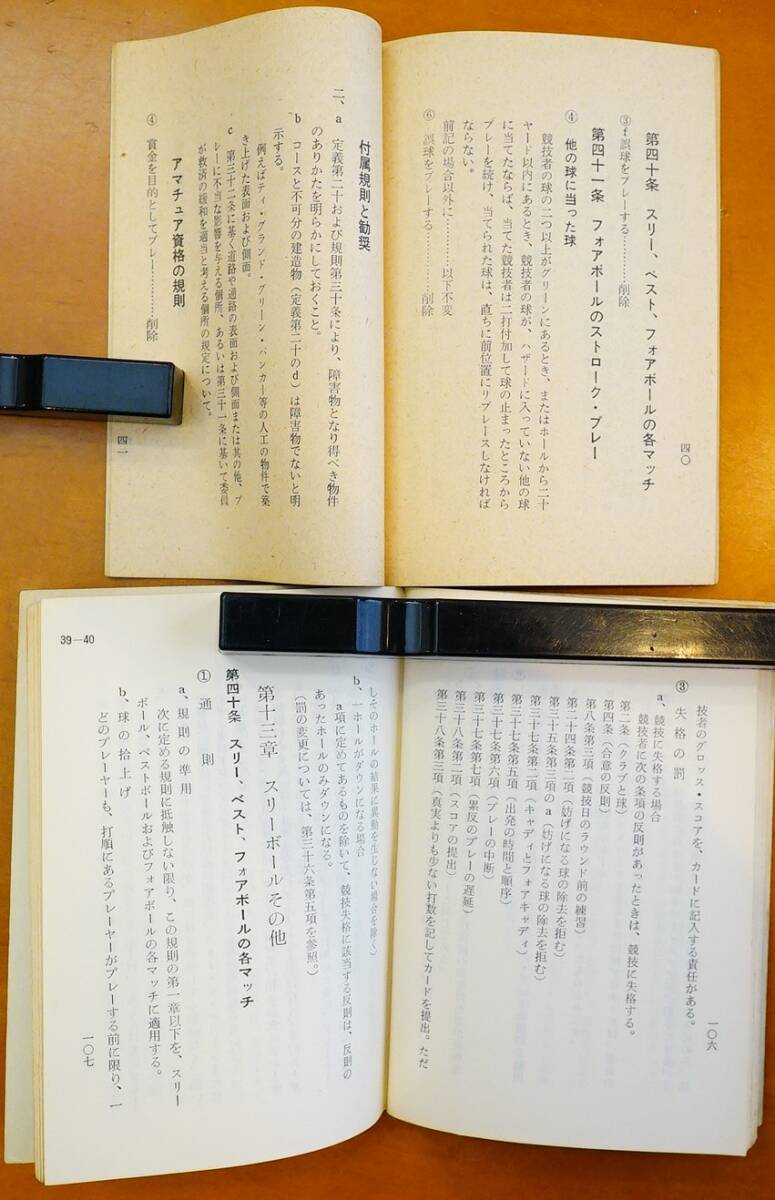 第四十条　スリー、ベスト、フォアボールの各マッチ
③f 誤球をプレーする…………削除
第四十一条　フォアボールのストローク・プレー
④　他の球に当った球
競技者の球の二つ以上がグリーンにあるとき、またはホールから二十
ヤード以内にあるとき、競技者の球が、ハザードに入っていない他の球
に当てたならば、当てた競技者は二打付加して球の止まったところから
プレーを続け、当てられた球は、直ちに前位置にリプレースしなければ
ならない。
前記の場合以外に………以下不変
⑥　誤球をプレーする…………削除
四〇
付属規則と勧奨
二、a　定義第二十および規則第三十条により、障害物となり得べき物件
のありかたを明らかにしておくこと。
b　コースと不可分の建造物（定義第二十のd）は障害物でないと明
示する。
例えばティ・グランド・グリーン・バンカー等の人工の物件で築
き上げた表面および側面。
c　第三十二条に基く道路や通路の表面および側面または其の他、プ
レーに不当な影響を与える個所、あるいは第三十一条に基いて委員
が救済の緩和を適当と考える個所の規定について。
アマチュア資格の規則
④　賞金を目的としてプレー…………削除
四一
技者のグロッス・スコアを、カードに記入する責任がある。
③　失格の罰
a、競技に失格する場合
競技者に次の条項の反則があったときは、競技に失格する。
第二条（クラブと球）
第四条（合意の反則）
第八条第三項（競技日のラウンド前の練習）
第二十四条第二項（妨げになる球の除去を拒む）
第三十五条第三項のa（妨げになる球の除去を拒む）
第三十七条第二項（キャディとフォアキャディ）
第三十七条第五項（出発の時間と順序）
第三十七条第六項（プレーの中断）
第三十七条第七項（累反のプレーの遅延）
第三十八条第二項（スコアの提出）
第三十八条第三項（真実よりも少ない打数を記してカードを提出。ただ
一〇六
39—40
しそのホールの結果に異動を生じない場合を除く）
b、一ホールがダウンになる場合
a項に定めてあるものを除いて、競技失格に該当する反則は、反則の
あったホールのみダウンになる。
（罰の変更については、第三十六条第五項を参照。）
第十三章　スリーボールその他
第四十条　スリー、ベスト、フォアボールの各マッチ
①　通則
a、規則の準用
次に定める規則に抵触しない限り、この規則の第一章以下を、スリー
ボール、ベストボールおよびフォアボールの各マッチに適用する。
b、球の拾上げ
どのプレーヤーも、打順にあるプレーヤーがプレーする前に限り、一
一〇七